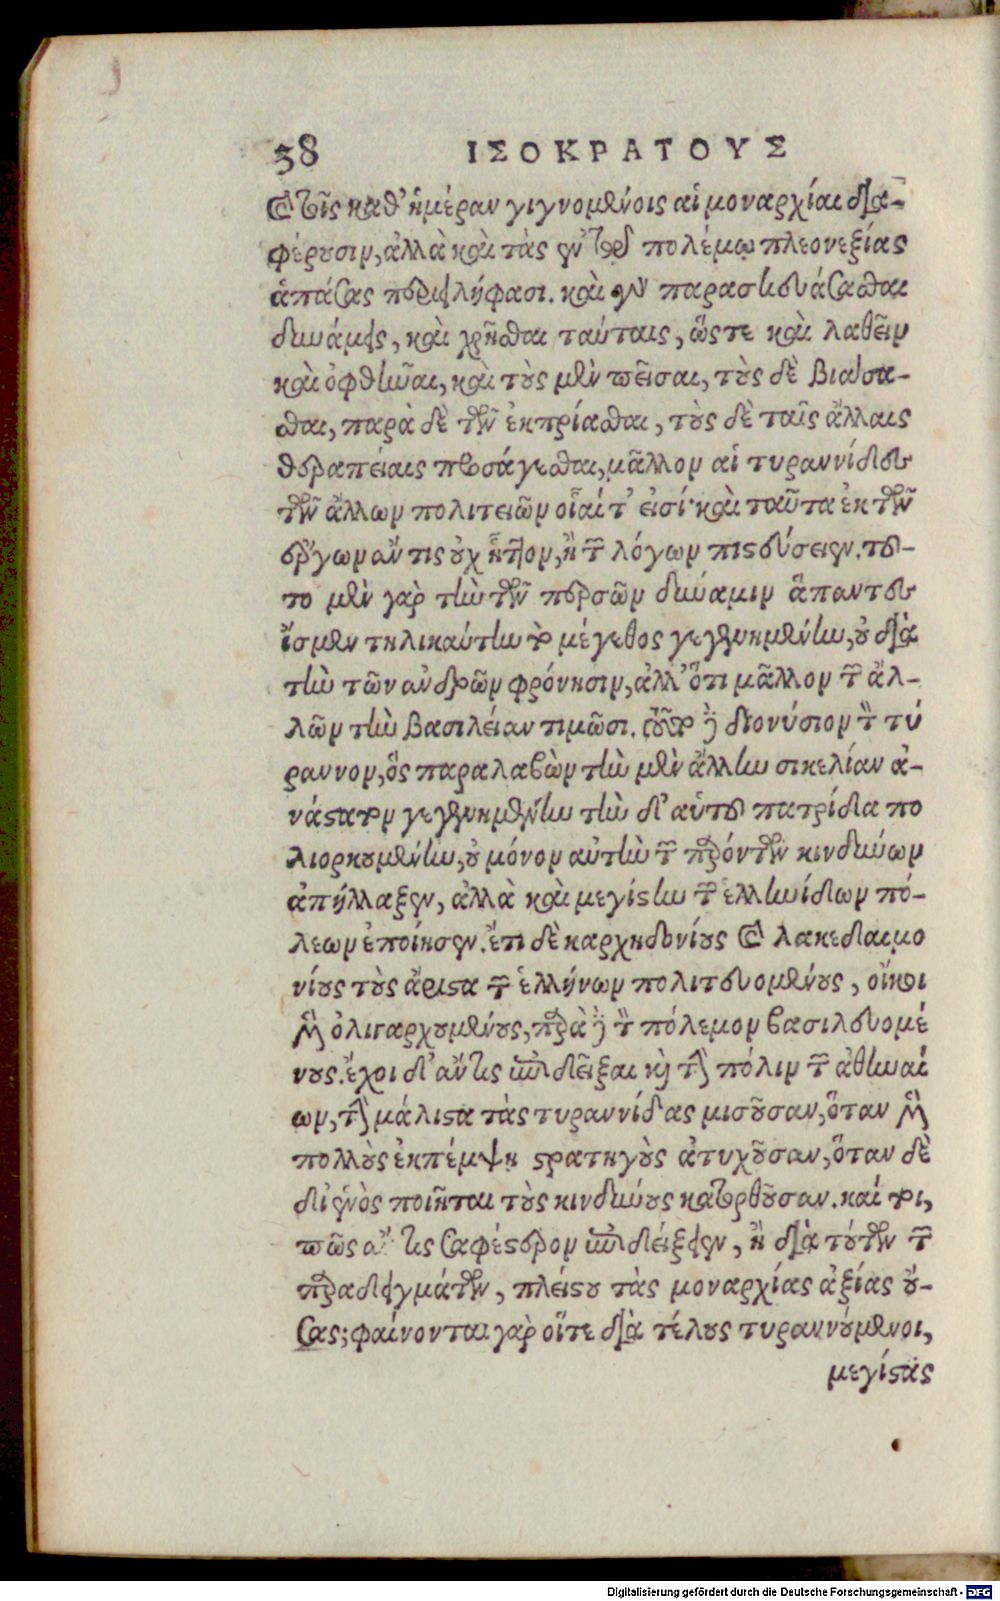 58 ΙΣΟΚΡΑΤΟΥΣ
καὶ τοῖς καθ' ἡμέραν γιγνομένοις αἱ μοναρχίαι δια-
φέρουσιν, ἀλλὰ καὶ τὰς ἐν τῷ πολέμῳ πλεονεξίας
ἁπάσας περιειλήφασι. καὶ γὰρ παρασκευάσασθαι
δυνάμεις, καὶ χρῆσθαι ταύταις, ὥστε καὶ λαθεῖν
καὶ ὀφθῆναι, καὶ τοὺς μὲν πεῖσαι, τοὺς δὲ βιάσα-
σθαι, παρὰ δὲ τῶν ἐκπρίασθαι, τοὺς δὲ ταῖς ἄλλαις
θεραπείαις προσάγεσθαι, μᾶλλον αἱ τυραννίδες
τῶν ἄλλων πολιτειῶν οἷαί τ' εἰσί· καὶ ταῦτα ἐκ τῶν
ἔργων ἄν τις οὐχ ἧττον, ἢ τῶν λόγων πιστεύσειεν. τοῦ-
το μὲν γὰρ τὴν τῶν περσῶν δύναμιν ἅπαντες
ἴσμεν τηλικαύτην τὸ μέγεθος γεγενημένην, οὐ διὰ
τὴν τῶν ἀνδρῶν φρόνησιν, ἀλλ' ὅτι μᾶλλον τῶν ἄλ-
λων τὴν βασιλείαν τιμῶσι. τοῦτο δὲ διονύσιον τὸν τύ
ραννον, ὃς παραλαβὼν τὴν μὲν ἄλλην σικελίαν ἀ-
νάστατον γεγενημένην τὴν δ' αὑτοῦ πατρίδα πο
λιορκουμένην, οὐ μόνον αὐτὴν τῶν παρόντων κινδύνων
ἀπήλλαξεν, ἀλλὰ καὶ μεγίστην τῶν ἑλληνίδων πό-
λεων ἐποίησεν. ἔτι δὲ καρχηδονίους καὶ λακεδαιμο
νίους τοὺς ἄριστα τῶν ἑλλήνων πολιτευομένους, οἴκοι
μὲν ὀλιγαρχουμένους, παρὰ δὲ τὸν πόλεμον βασιλευομέ
νους. ἔχοι δ' ἄν τις ἐπιδεῖξαι καὶ τὴν πόλιν τῶν ἀθηναί
ων, τὴν μάλιστα τὰς τυραννίδας μισοῦσαν, ὅταν μὲν
πολλοὺς ἐκπέμψῃ στρατηγοὺς ἀτυχοῦσαν, ὅταν δὲ
δι' ἑνὸς ποιῆται τοὺς κινδύνους κατορθοῦσαν. καί τοι,
πῶς ἄν τις σαφέστερον ἐπιδείξειεν, ἢ διὰ τούτων τῶν
παραδειγμάτων, πλείστου τὰς μοναρχίας ἀξίας οὔ-
σας; φαίνονται γὰρ οἵτε διὰ τέλους τυραννούμενοι,
μεγίστας
Digitalisierung gefördert durch die Deutsche Forschungsgemeinschaft - DFG